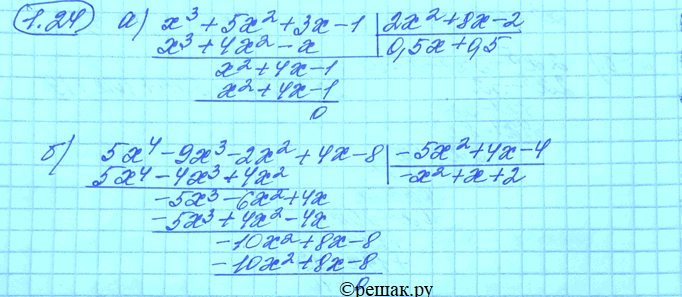 1.24 a) x³ + 5x² + 3x - 1 | 2x² + 8x - 2
x³ + 4x² - x | 0,5x + 0,5
x² + 4x - 1
x² + 4x - 1
0
б) 5x⁴ - 9x³ - 2x² + 4x - 8 | -5x² + 4x - 4
5x⁴ - 4x³ + 4x² | -x² + x + 2
-5x³ - 6x² + 4x
-5x³ + 4x² - 4x
-10x² + 8x - 8
-10x² + 8x - 8
0
©решак.ру